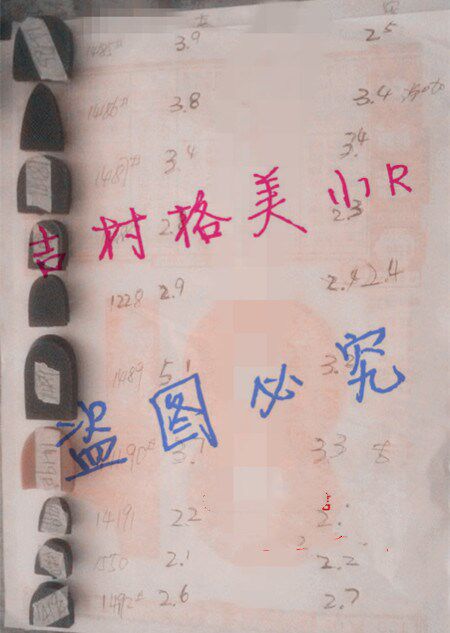 1485# 3.9 25
1486# 3.8 3.4
1487# 3.4 3.4
吉村格美小R
2.3
1228 2.9 2.4 2.4
1489 5.1
盗图必究
1490# 3.7 33
1491 22
1550 2.1 2.2
1492# 2.6 2.7